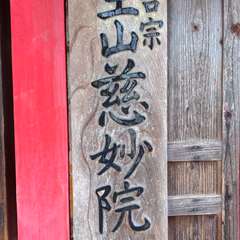 宗
山慈妙院